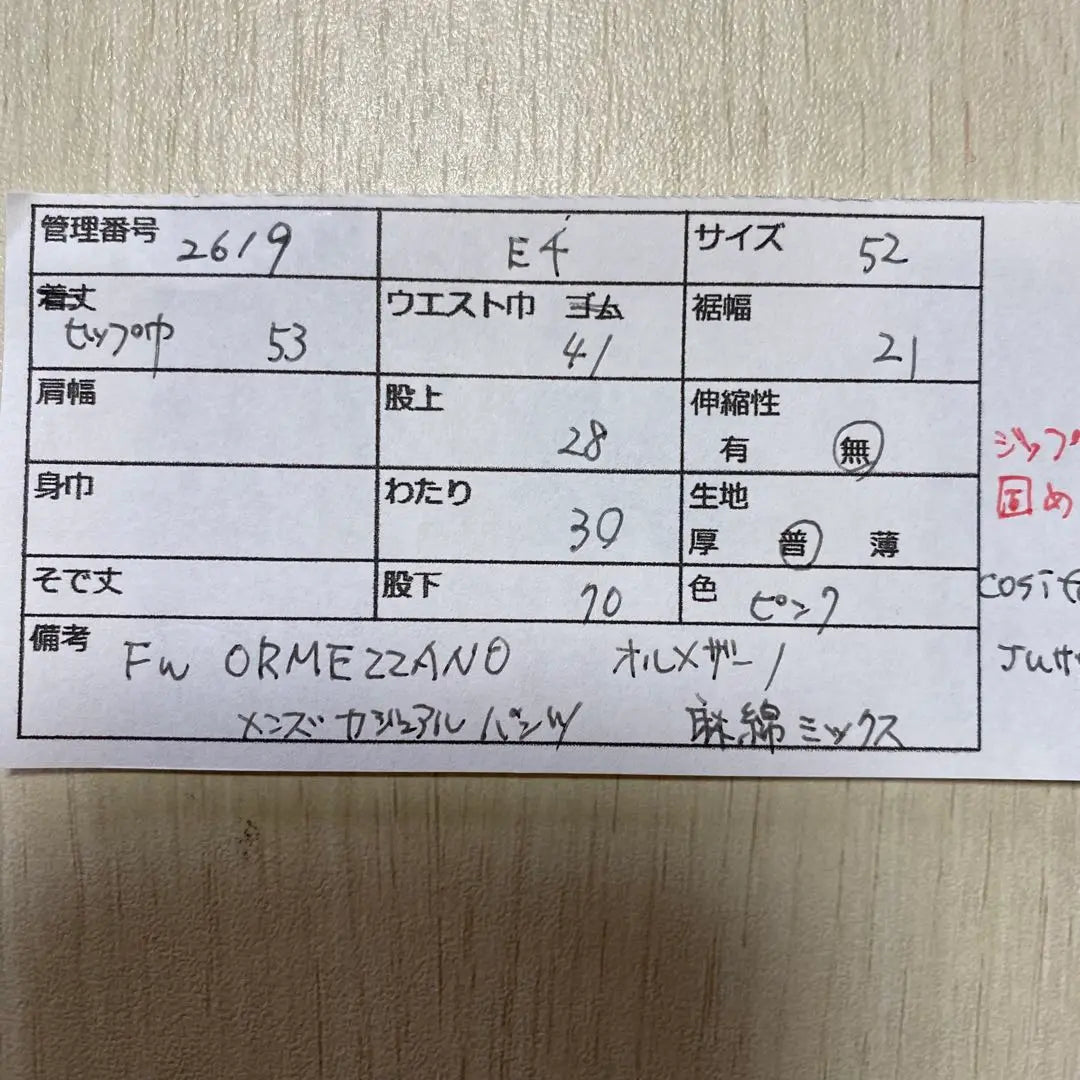 管理番号 2619 E4 サイズ 52
着丈 ウエスト巾 ゴム 裾幅
ヒップ巾 53 41 21
肩幅 股上 伸縮性
28 有 無
ジップ
身巾 わたり 生地
固め
30 厚 普 薄
そで丈 股下 色
70 ピンク
備考 Fw ORMEZZANO オルメザーノ
メンズ カジュアル パンツ 麻綿ミックス